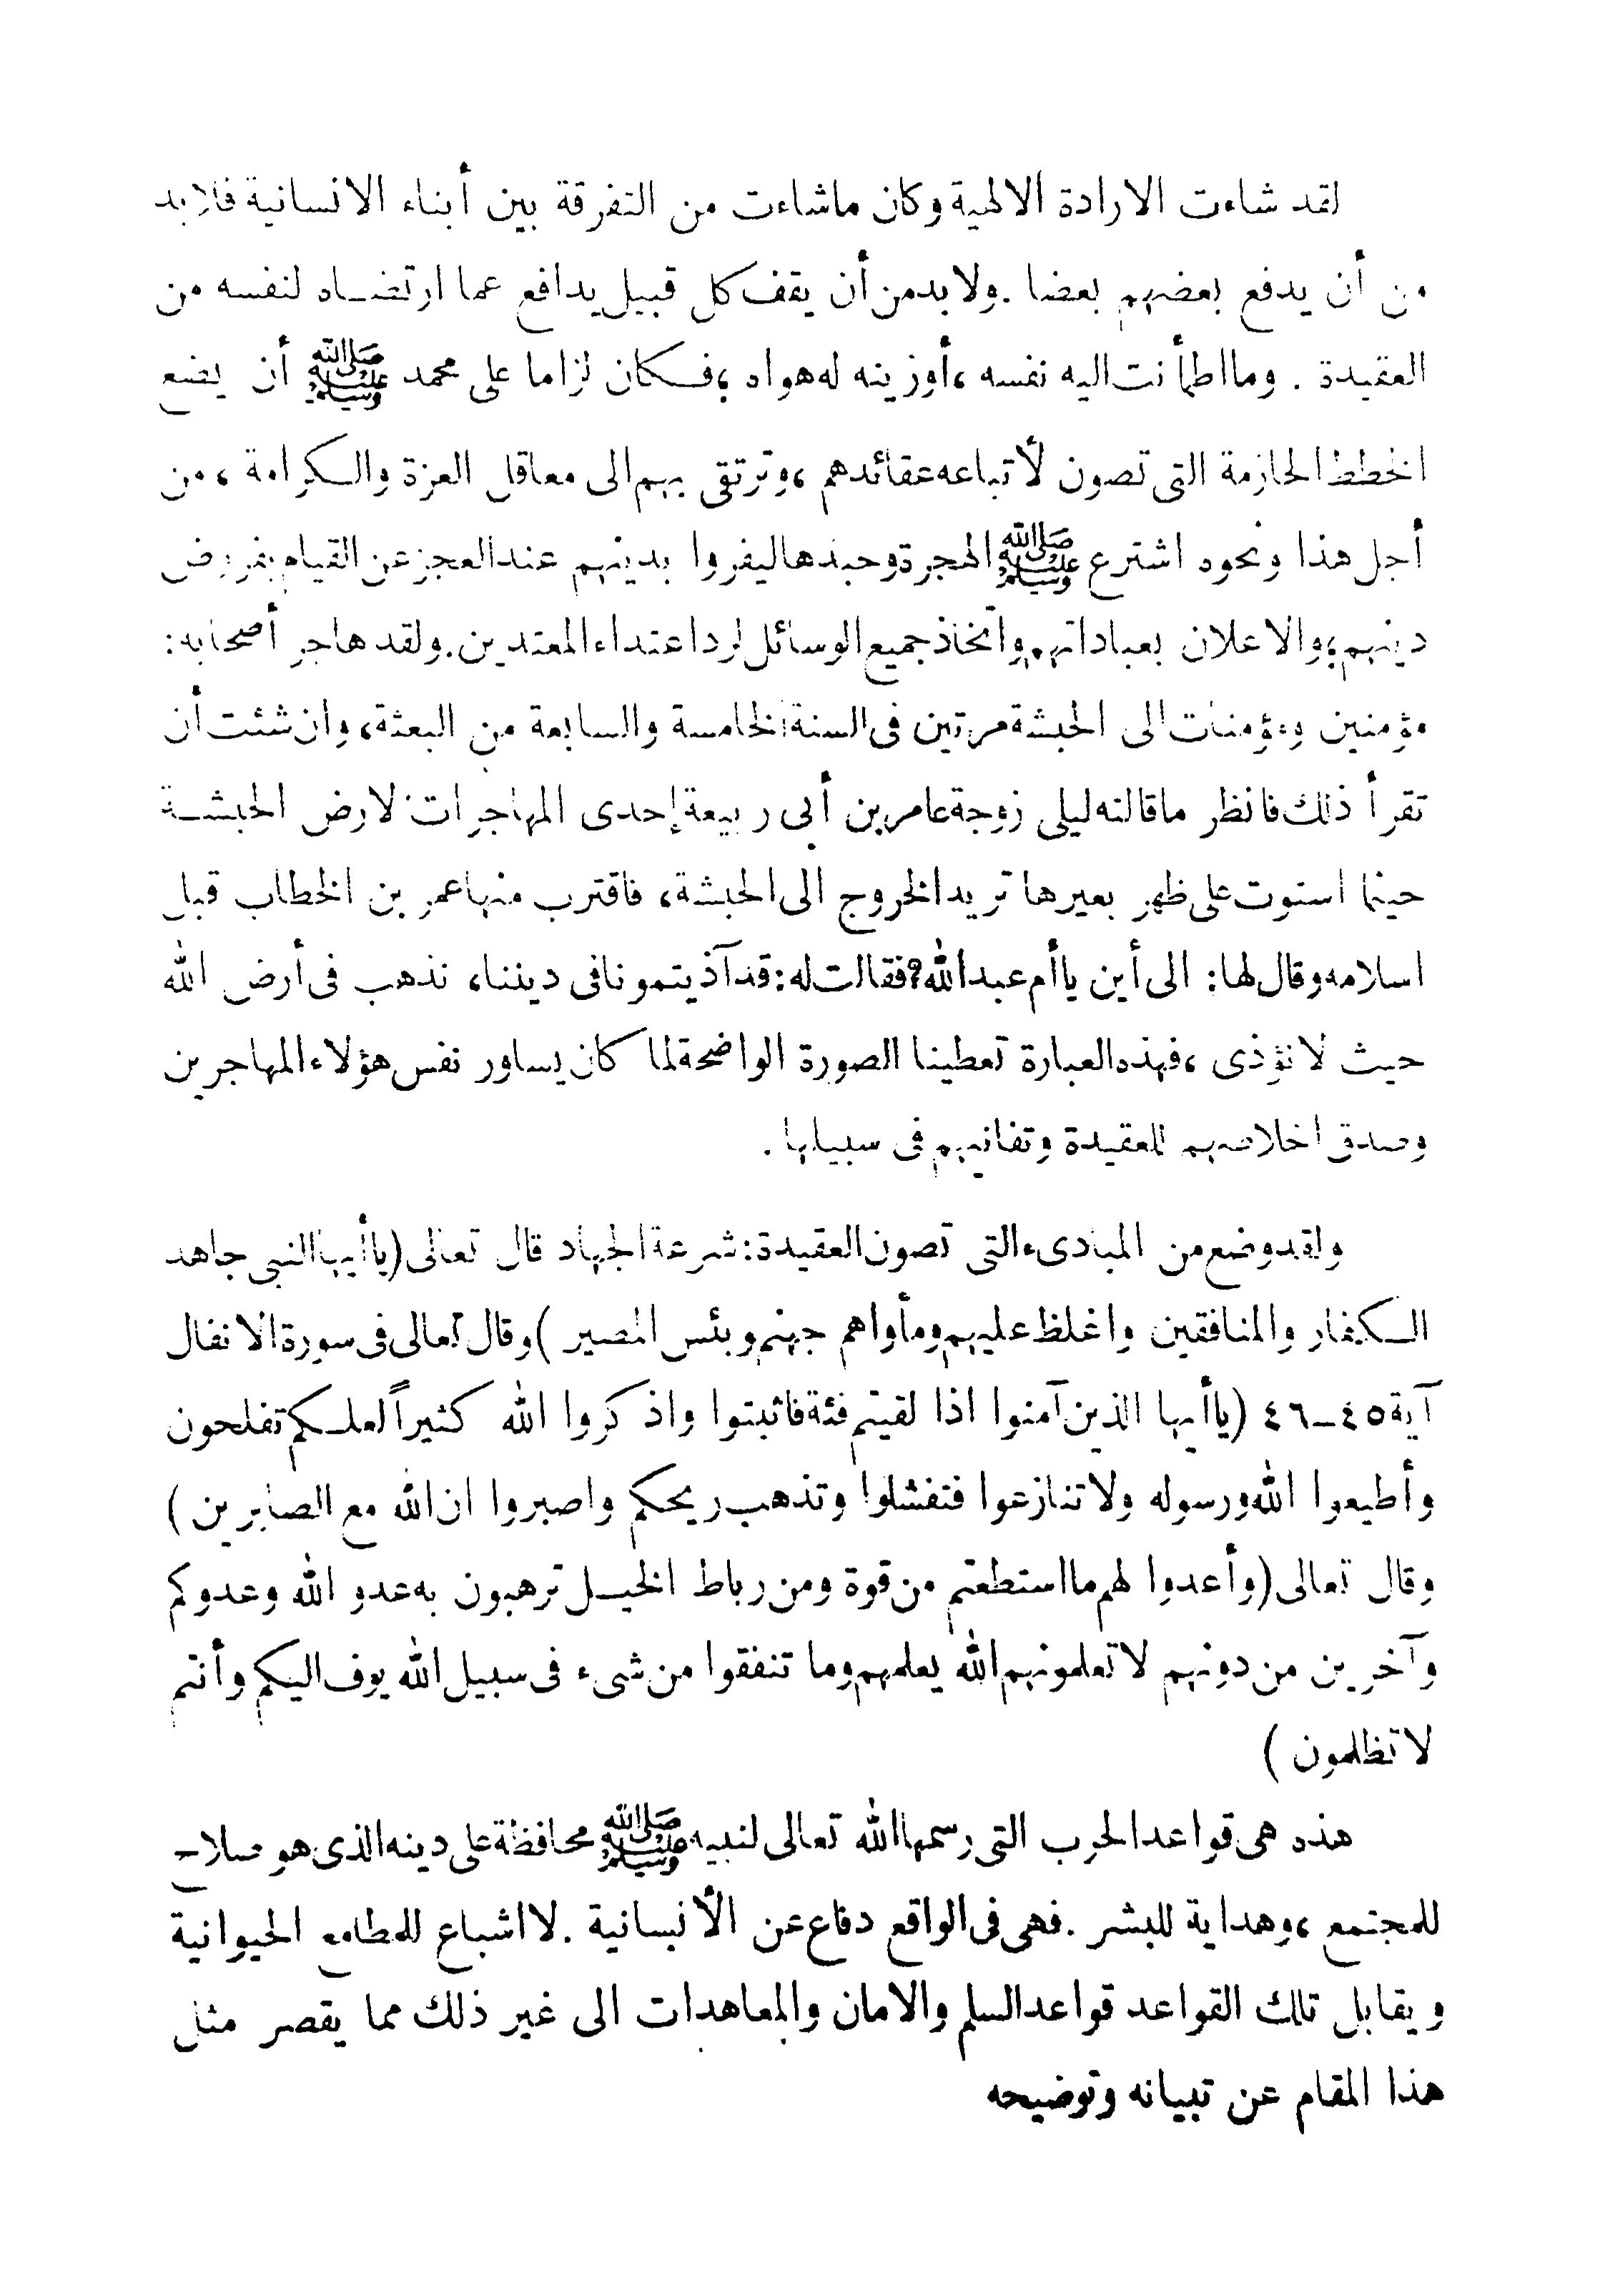 لقد شاءت الارادة الالهية وكان ماشاءت من التفرقة بين أبناء الانسانية فلابد
من أن يدفع بعضهم بعضا . ولا بد من أن يقف كل قبيل يدافع عما ارتضاه لنفسه من
العقيدة . وما اطمأنت اليه نفسه ، أو زينه له هواه ، فكان لزاما على محمد ﷺ أن يضع
الخطط الحازمة التى تصون لأتباعه عقائدهم ، وترتقى بهم الى معاقل العزة والكرامة ، من
أجل هذا ونحوه اشترع ﷺ الهجرة وحبذها ليفروا بدينهم عند العجز عن القيام بفروض
دينهم ، والاعلان بعباداتهم واتخاذ جميع الوسائل لرد اعتداء المعتدين . ولقد هاجر أصحابه :
مؤمنين ومؤمنات الى الحبشة مرتين فى السنة الخامسة والسابعة من البعثة ، وان شئت أن
تقرأ ذلك فانظر ما قالته ليلى زوجة عامر بن أبى ربيعة إحدى المهاجرات لارض الحبشة
حينما استوت على ظهر بعيرها تريد الخروج الى الحبشة ، فاقترب منها عمر بن الخطاب قبل
اسلامه وقال لها : الى أين يا أم عبد الله ؟ فقالت له : قد آذيتمونا فى ديننا ، نذهب فى أرض الله
حيث لا نؤذى ، فهذه العبارة تعطينا الصورة الواضحة لما كان يساور نفس هؤلاء المهاجرين
وصدق اخلاصهم للعقيدة وتفانيهم فى سبيلها .
ولقد وضع من المبادىء التى تصون العقيدة : شرعة الجهاد قال تعالى ( يا أيها النبى جاهد
الكفار والمنافقين واغلظ عليهم ومأواهم جهنم وبئس المصير ) وقال تعالى فى سورة الانفال
آية ٤٥ـ٤٦ ( يا أيها الذين آمنوا اذا لقيتم فئة فاثبتوا واذكروا الله كثيراً لعلكم تفلحون
وأطيعوا الله ورسوله ولا تنازعوا فتفشلوا وتذهب ريحكم واصبروا ان الله مع الصابرين )
وقال تعالى ( وأعدوا لهم ما استطعتم من قوة ومن رباط الخيل ترهبون به عدو الله وعدوكم
وآخرين من دونهم لا تعلمونهم الله يعلمهم وما تنفقوا من شىء فى سبيل الله يوف اليكم وأنتم
لا تظلمون )
هذه هى قواعد الحرب التى رسمها الله تعالى لنبيه ﷺ محافظة على دينه الذى هو صلاح
للمجتمع ، وهداية للبشر . فهى فى الواقع دفاع عن الأنسانية . لا اشباع للمطامع الحيوانية
ويقابل تلك القواعد قواعد السلم والامان والمعاهدات الى غير ذلك مما يقصر مثل
هذا المقام عن تبيانه وتوضيحه